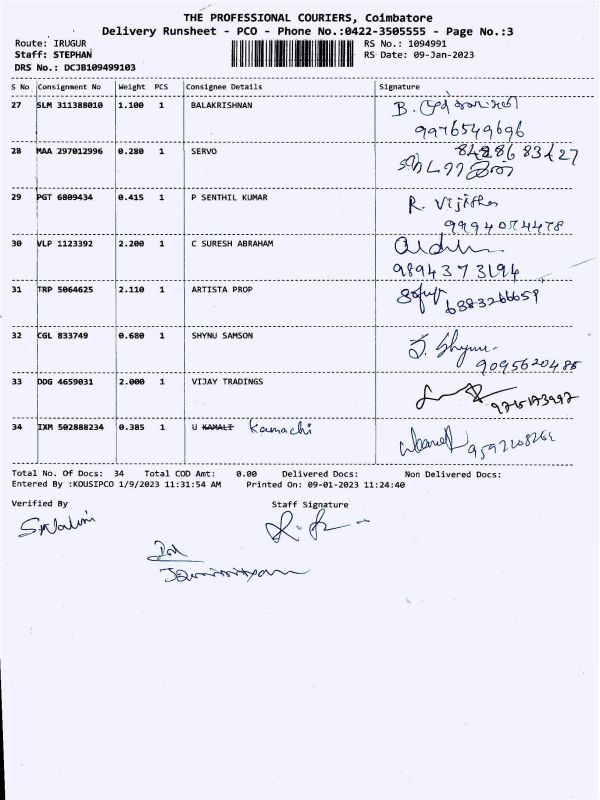 THE PROFESSIONAL COURIERS, Coimbatore
Delivery Runsheet - PCO - Phone No.:0422-3505555 - Page No.:3
Route: IRUGUR RS No.: 1094991
Staff: STEPHAN RS Date: 09-Jan-2023
DRS No.: DCJB109499103
S No Consignment No Weight PCS Consignee Details Signature
27 SLM 311388010 1.100 1 BALAKRISHNAN B.
9976549696
28 MAA 297012996 0.280 1 SERVO 8428683427
29 PGT 6809434 0.415 1 P SENTHIL KUMAR R. Vijitha
9994074478
30 VLP 1123392 2.200 1 C SURESH ABRAHAM
9894373194
31 TRP 5064625 2.110 1 ARTISTA PROP 6383266659
32 CGL 833749 0.680 1 SHYNU SAMSON J. Shynu
9095620485
33 DDG 4659031 2.000 1 VIJAY TRADINGS
34 IXM 502888234 0.385 1 U KAMALI Kamachi
Total No. Of Docs: 34 Total COD Amt: 0.00 Delivered Docs: Non Delivered Docs:
Entered By :KOUSIPCO 1/9/2023 11:31:54 AM Printed On: 09-01-2023 11:24:40
Verified By Staff Signature